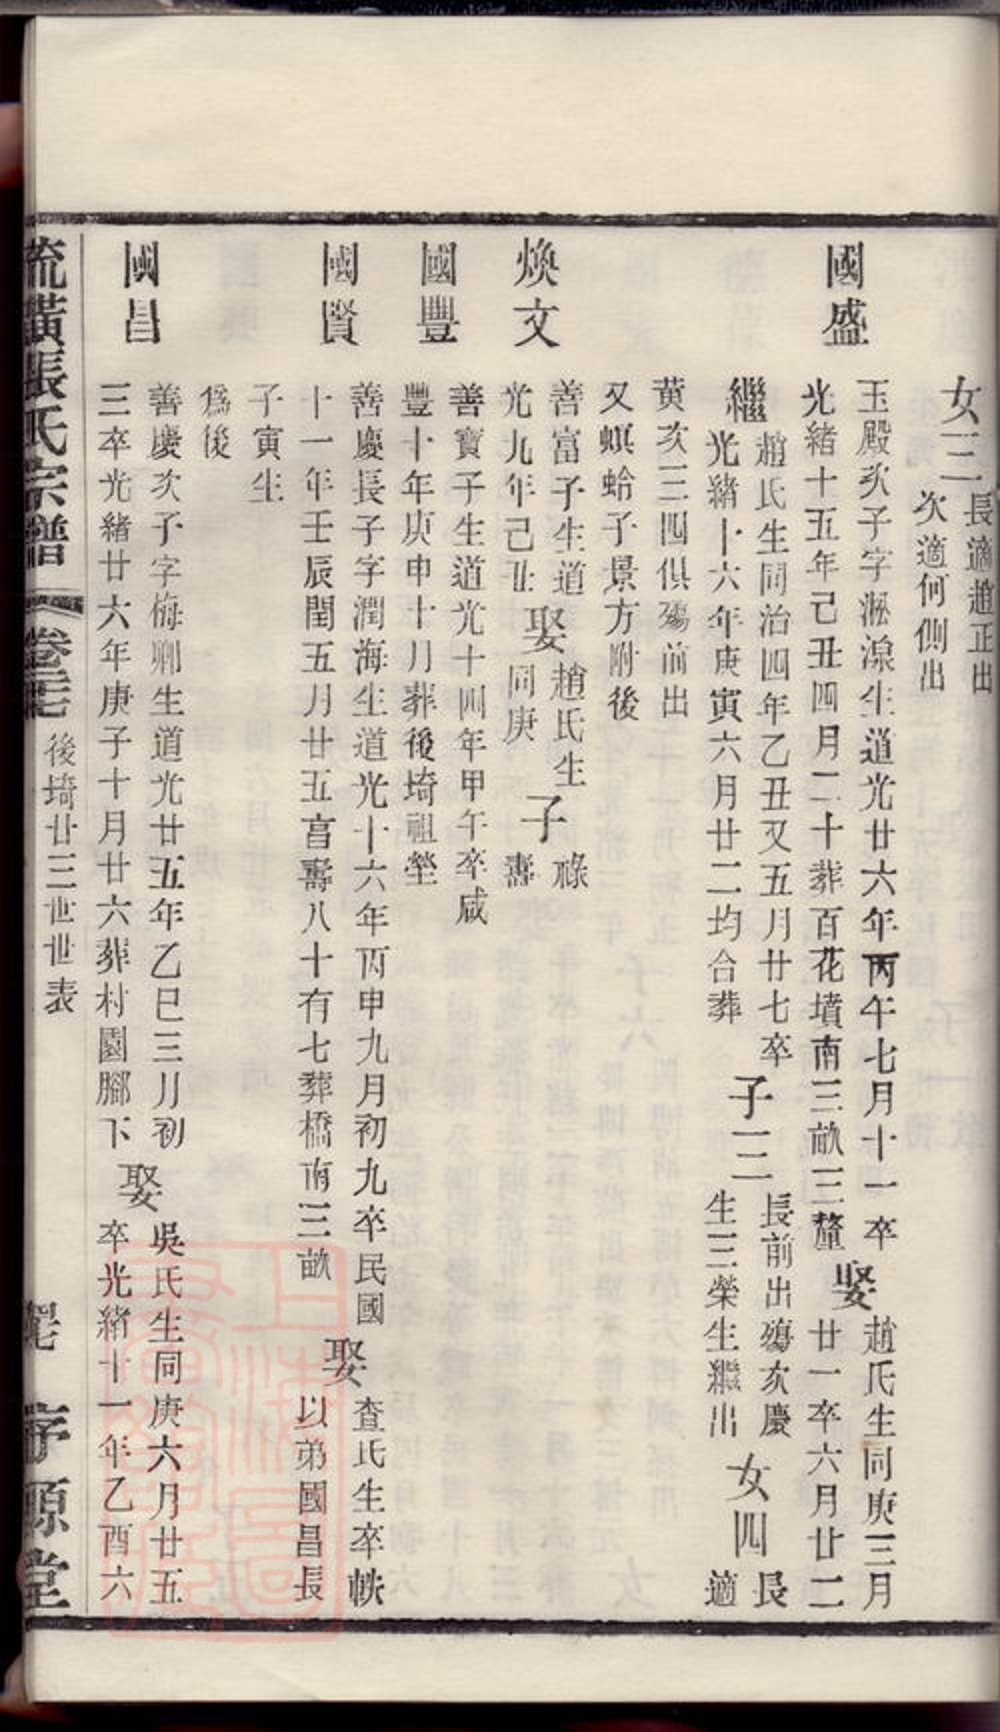 女三
長適趙正出
次適何側出
國盛
玉殿次子字淞澴生道光廿六年丙午七月十一卒
光緒十五年己丑四月二十葬百花墳南三畝三釐
娶
趙氏生同庚三月
廿一卒六月廿二
繼
趙氏生同治四年乙丑又五月廿七卒
光緒十六年庚寅六月廿二均合葬
子三
長前出殤次慶
生三榮生繼出
女四
長適
黄次三四俱殤前出
又螟蛉子景方附後
煥文
善富子生道
光九年己丑
娶
趙氏生
同庚
子
祿
壽
國豐
善寶子生道光十四年甲午卒咸
豐十年庚申十月葬後埼祖塋
國賢
善慶長子字潤海生道光十六年丙申九月初九卒民國
十一年壬辰閏五月廿五亯壽八十有七葬橋南三畝
娶
查氏生卒帙
以弟國昌長
子寅生
為後
國昌
善慶次子字梅卿生道光廿五年乙巳三月初
三卒光緒廿六年庚子十月廿六葬村園腳下
娶
吳氏生同庚六月廿五
卒光緒十一年乙酉六
流璜張氏宗譜
卷三 後埼廿三世世表
序源堂